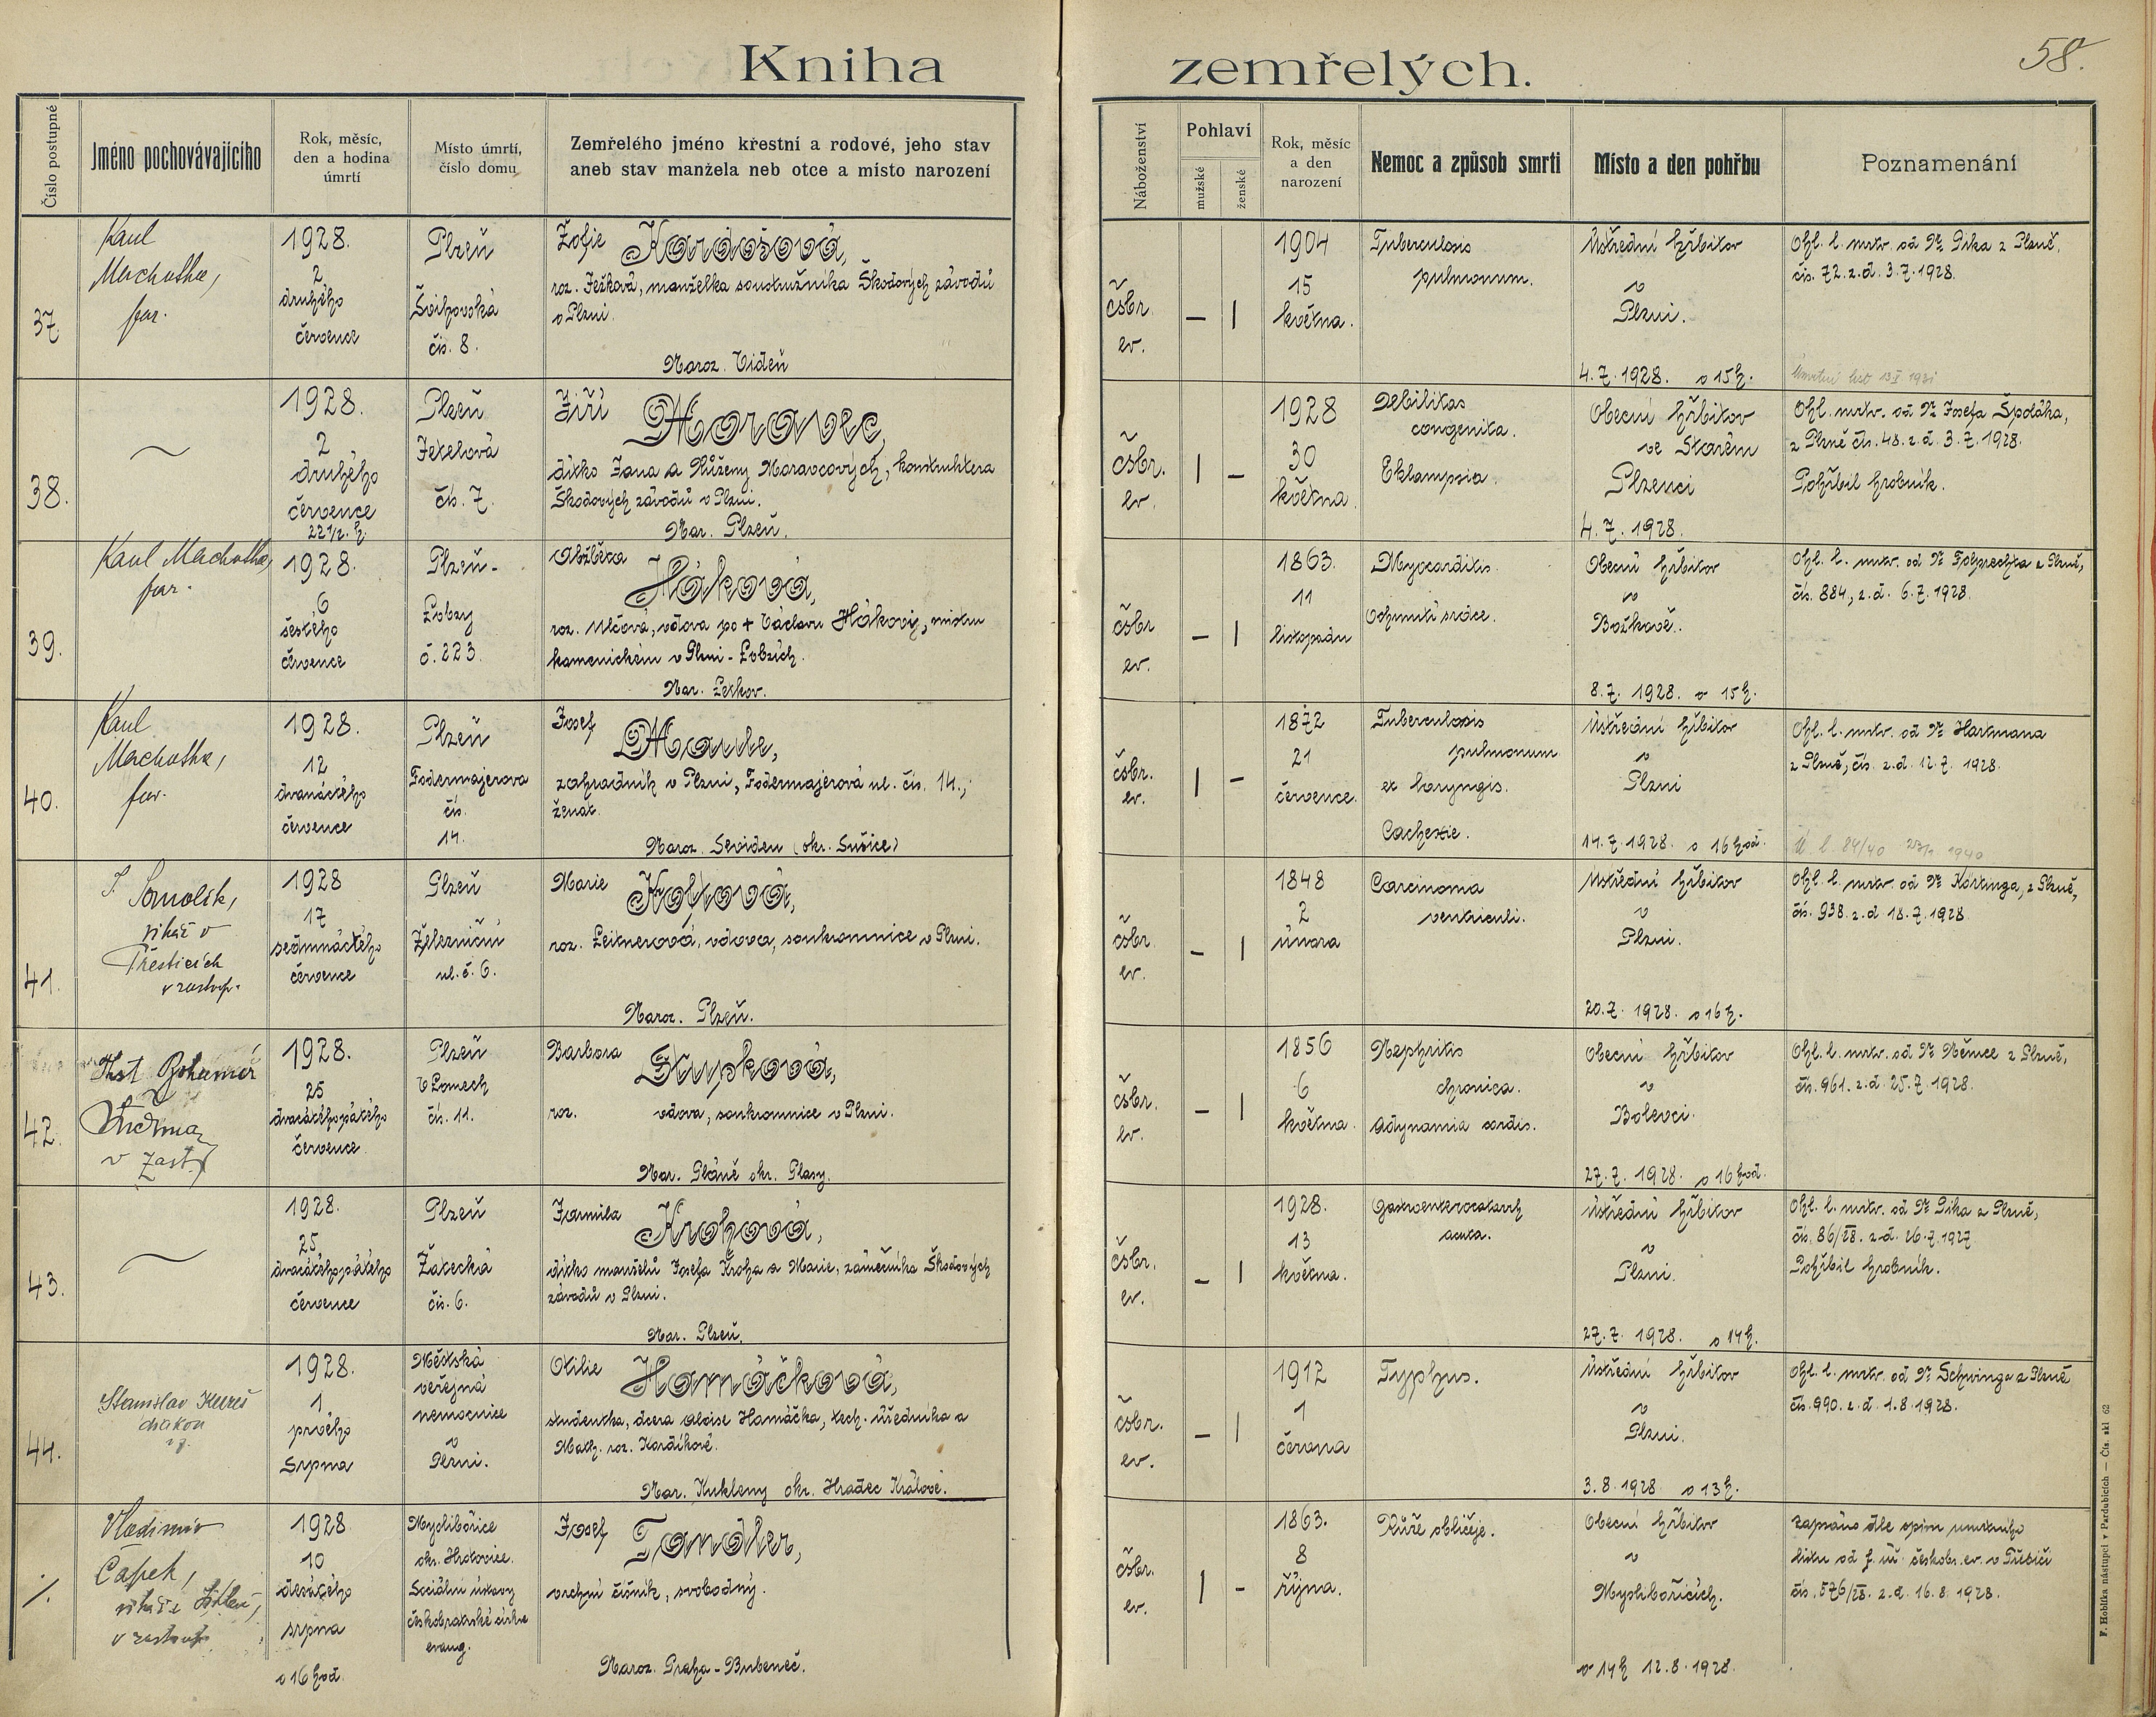 Kniha zemřelých.
58.
Číslo postupné
Jméno pochovávajícího
Rok, měsíc,
den a hodina
úmrtí
Místo úmrtí,
číslo domu
Zemřelého jméno křestní a rodové, jeho stav
aneb stav manžela neb otce a místo narození
Náboženství
Pohlaví
mužské
ženské
Rok, měsíc
a den
narození
Nemoc a způsob smrti
Místo a den pohřbu
Poznamenání
37.
Kaul
Machotka,
far.
1928.
2
druhého
července
Plzeň
Švihovská
čís. 8.
Žofie Kardošová,
roz. Ježková, manželka soustružníka Škodových závodů
v Plzni.
Naroz. Vídeň
čsbr.
ev.
— |
1904
15
května.
Tuberculosis
pulmonum.
Ústřední hřbitov
v
Plzni.
4.7.1928. o 15 h.
Ohl. l. mrtv. od Dr Pika z Plzně,
čís. 72. z. d. 3.7.1928.
Úmrtní list
38.
1928.
2
druhého
července
22 1/2 h.
Plzeň
Jetelová
čís. 7.
Jiří Moravec,
dítko Jana a Růženy Moravcových, konstruktera
Škodových závodů v Plzni.
Nar. Plzeň.
čsbr.
ev.
| —
1928
30
května.
Debilitas
congenita.
Eklampsia.
Obecní hřbitov
ve Starém
Plzenci
4.7.1928.
Ohl. mrtv. od Dr Josefa Špoláka,
z Plzně čís. 48. z. d. 3.7.1928.
Pohřbil hrobník.
39.
Kaul Machotka,
far.
1928.
6
šestého
července
Plzeň-
Lobzy
č. 223.
Alžběta Hákova,
roz. Vlčová, vdova po + Václavu Hákovi, mistru
kamenickém v Plzni-Lobzích.
Nar. Letkov.
čsbr
ev.
— |
1863.
11
listopadu
Myocarditis.
Ochrnutí srdce.
Obecní hřbitov
v
Božkově.
8.7. 1928. o 15 h.
čís. 884, z. d. 6.7.1928.
40.
Kaul
Machotka,
far.
1928.
12
dvanáctého
července
Plzeň
Fodermajerova
čís.
14.
Josef Maule,
zahradník v Plzni, Fodermajerová ul. čís. 14.,
ženat.
Naroz. (okr. Sušice)
čsbr.
ev.
| —
1872
21
července.
Tuberculosis
pulmonum
et laryngis.
Cachexie.
Ústřední hřbitov
v
Plzni
14.7.1928. o 16 hod.
Ohl. l. mrtv. od Dr Hartmana
z Plzně, čís. z. d. 12.7. 1928.
Ú. l. 84/40 1940
41.
J. Somolík,
vikář v
Přešticích
v zastup.
1928
17
sedmnáctého
července
Plzeň
Železniční
ul. č. 6.
Marie Kohová,
roz. Leitnerová, vdova, soukromnice v Plzni.
Naroz. Plzeň.
čsbr.
ev.
— |
1848
2
února
Carcinoma
ventriculi.
Ústřední hřbitov
v
Plzni.
20.7. 1928. o 16 h.
Ohl. l. mrtv. od Dr Körtinga, z Plzně,
čís. 938. z. d 18.7.1928
42.
v zast.
1928.
25
dvacátého pátého
července
Plzeň
V Lomech
čís. 11.
Barbora Šlupková,
roz. vdova, soukromnice v Plzni.
Nar. Pláně okr. Plasy.
čsbr.
ev.
— |
1856
6
května.
Nephritis
chronica.
Adynamia cordis.
Obecní hřbitov
v
Bolevci.
27.7. 1928. o 16 hod.
Ohl. l. mrtv. od Dr Němce z Plzně,
čís. 961. z. d. 25.7.1928.
43.
1928.
25.
dvacátého pátého
července
Plzeň
Žatecká
čís. 6.
Jarmila Krohová,
dítko manželů Josefa Kroha a Marie, zámečníka Škodových
závodů v Plzni.
Nar. Plzeň.
čsbr.
ev.
— |
1928.
13
května.
Gastroenterocatarrh
acuta.
Ústřední hřbitov
v
Plzni.
27.7. 1928. o 14 h.
Ohl. l. mrtv. od Dr Pika z Plzně,
čís. 86/28. z. d. 26.7.1927
Pohřbil hrobník.
44.
Stanislav Kureš
diakon
1928.
1
prvého
srpna
Městská
veřejná
nemocnice
v
Plzni.
Otilie Hamáčková,
studentka, dcera Aloise Hamáčka, tech. úředníka a
Math. roz. Kordíkové.
Nar. Kukleny okr. Hradec Králové.
čsbr.
ev.
— |
1912
1
června
Typhus.
Ústřední hřbitov
v
Plzni.
3.8.1928 o 13 h.
Ohl. l. mrtv. od Dr Schwinga z Plzně
čís. 990. z. d. 1.8.1928.
/.
Vladimír
Čapek,
v zastoup.
1928.
10
desátého
srpna
o 16 hod.
Myslibořice
okr. Hrotovice.
Sociální ústavy
českobratrské církve
evang.
Josef Tandler,
vrchní číšník, svobodný.
Naroz. Praha-Bubeneč.
čsbr.
ev.
| -
1863.
8
října.
Růže obličeje.
Obecní hřbitov
v
Myslibořicích.
o 14 h 12.8.1928.
zapsáno dle opisu úmrtního
listu od f. úř. českobr. ev. v Třebíči
čís. 576/28. z. d. 16.8.1928.
F. Hoblíka nástupci v Pardubicích — Čís. skl 62